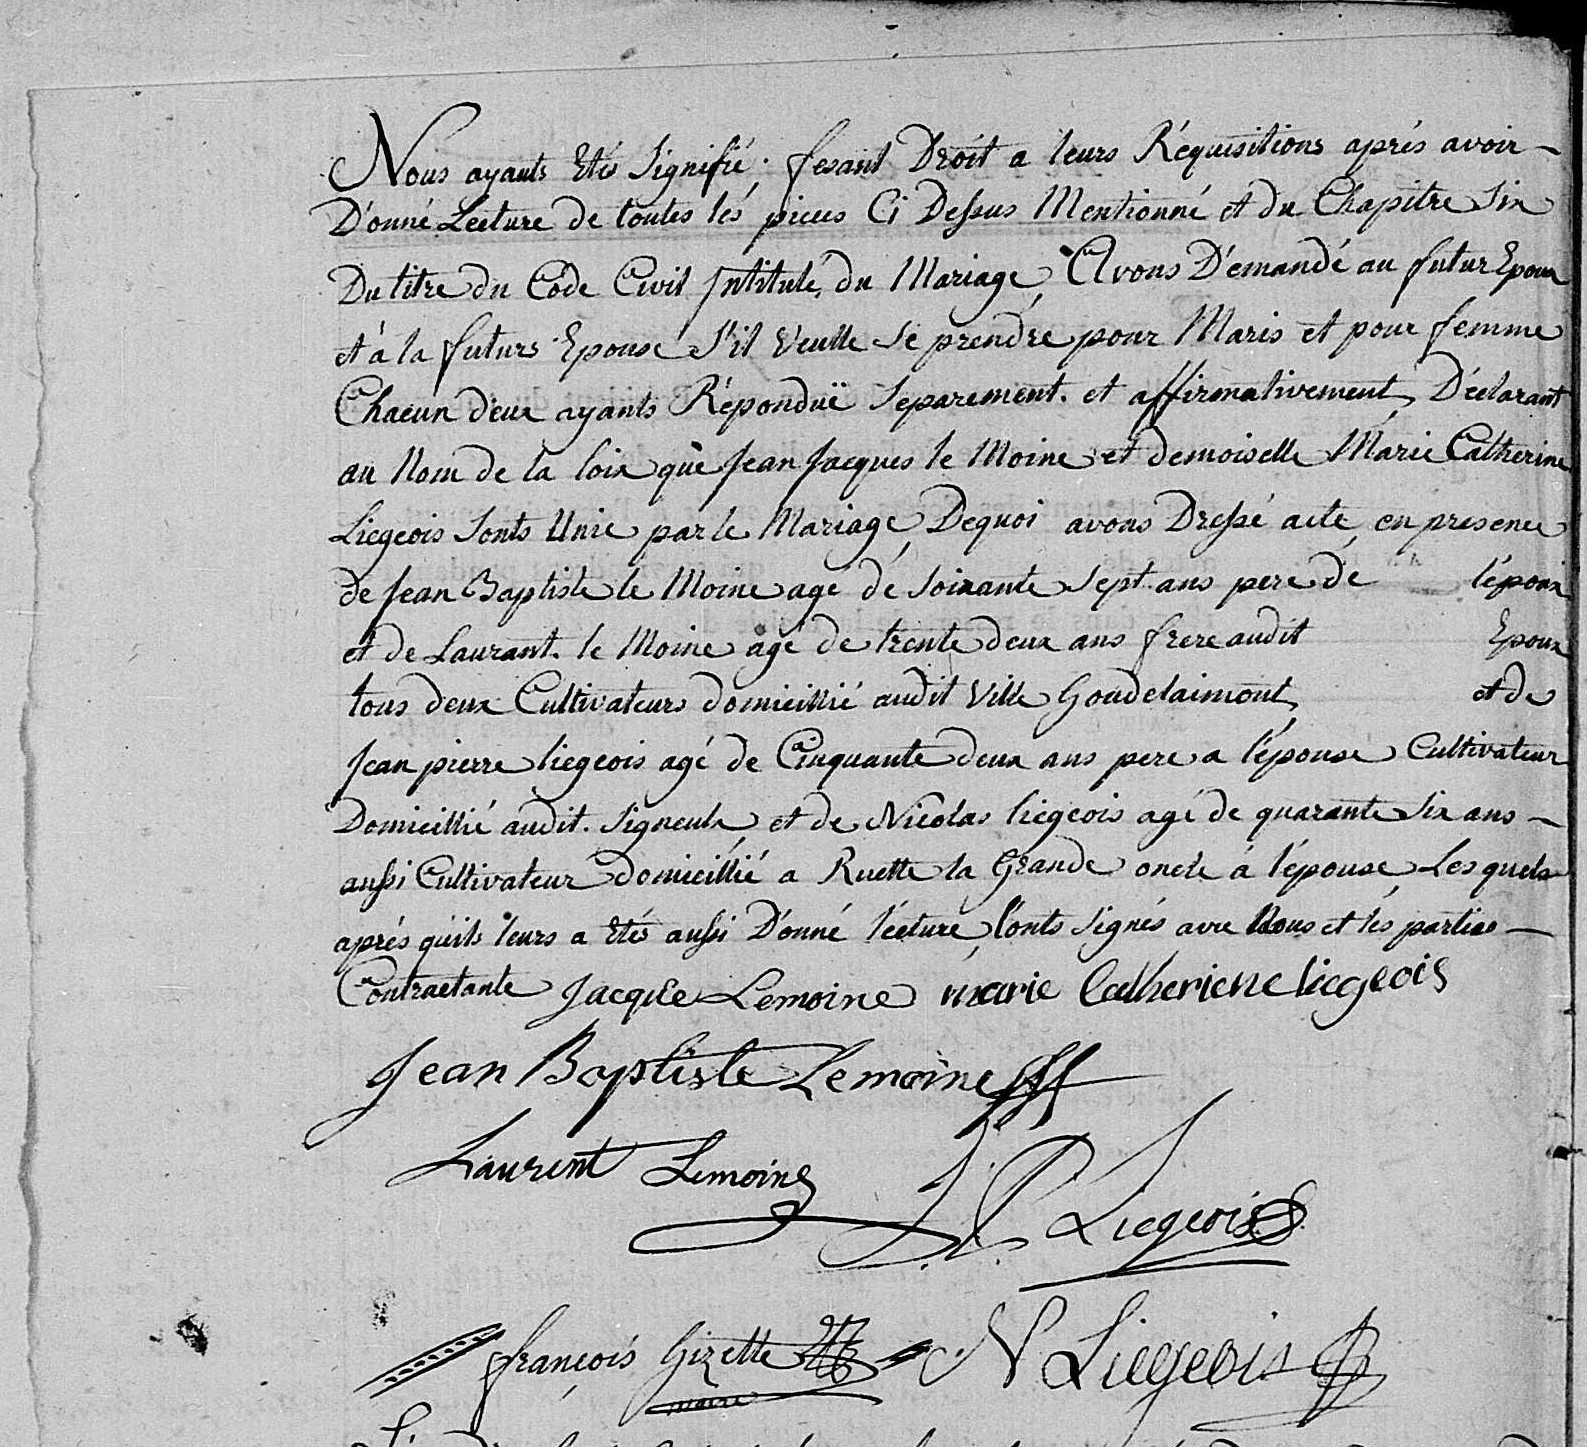 Nous ayants Etés Signifié. fesant Droit a leurs Réquisitions aprés avoir –
D'onné Lecture de toutes lés pieces Ci Dessus Mentionné et du Chapitre Six
Du titre du Code Civil Intitulé, du Mariage, Avons D'emandé au futur Epoux
et à la futurs Epouse S'il Veulle se prendre pour Maris et pour femme
Chacun deux ayants Réponduë Separement. et affirmativement, Déclarant
au Nom de la loix què Jean Jacques le Moine et demoiselle Marie Catherine
Liegeois Sonts Unie par le Mariage, Dequoi avons Dressé acte, en presence
de Jean Baptiste le Moine age dé Soixante Sept ans pere dé l'époux
et de Laurant. le Moine agé de trente deux ans frere audit Epoux
tous deux Cultivateurs domicillié audit Ville Goudelaimont, et de
Jean pierre liegeois agé de Cinquante deux ans pere a l'épouse Cultivateur
Domicillié audit. Signeulx, et de Nicolas liegeois agé de quarante Six ans –
aussi Cultivateur domicillié a Ruette la Grande oncle á l'épouse Les quels
aprés quils leurs a Etés aussi D'onné lécture, l'onts Signés avec Nous et lés parties –
Contractante Jacque Lemoine marie Catheriene liegeois
Jean Baptiste Lemoine
Laurent Lemoine J. P. Liegeois
françois Gizette N Liegeois
maire